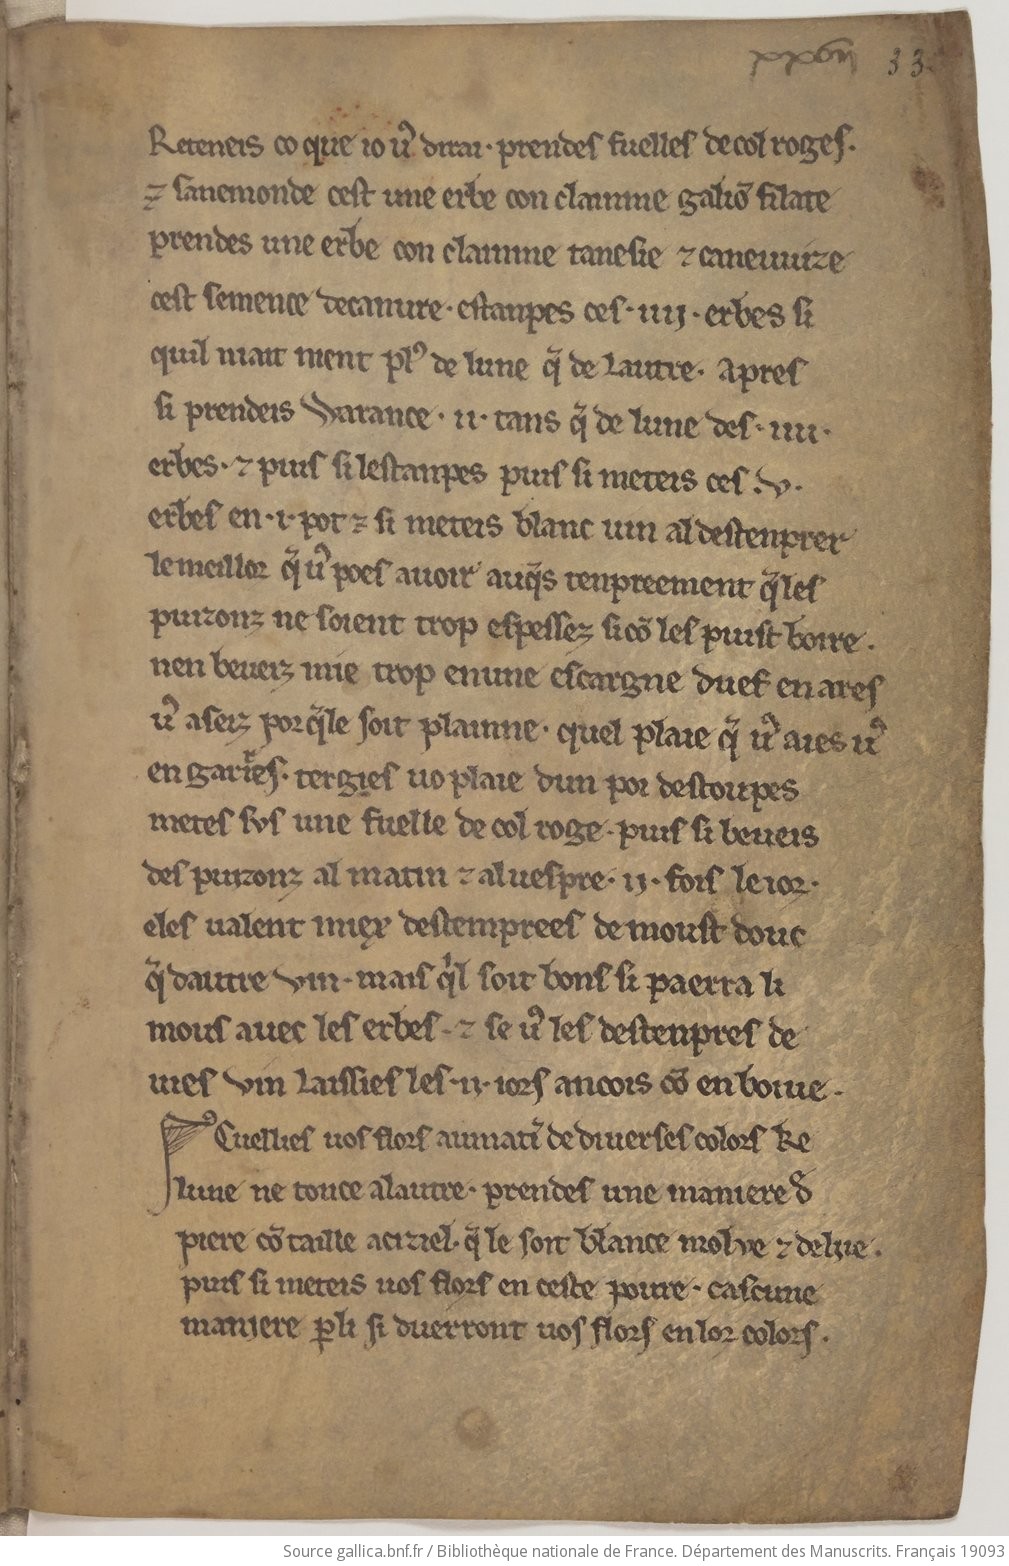 xxxvii 33
Reteneis co que io uꝰ dirai · prendes fuelles de col roges ·
⁊ sanemonde cest une erbe con clainme galiō filate
prendes une erbe con clainme tanesie ⁊ caneuuize
cest semence de canure · estanpes ces · iiij · erbes si
quil niait nient plꝰ de lune q̃ de lautre · Apres
si prendeis Warance · ii · tans q̃ de lune des · iiii ·
erbes · ⁊ puis si lestanpes puis si meteis ces · v ·
erbes en · i · pot ⁊ si meteis blanc uin al destenprer
le meillor q̃ uꝰ poes auoir auq̃s tenpreement q̃ les
puizonz ne soient trop espessez si cō les puist boire ·
nen beueiz mie trop en une escargne duef en ares
uꝰ aseiz por q̃le soit plainne · quel plaie q̃ uꝰ aies uꝰ
en garires · tergies uo plaie dun poi destoupes
metes sus une fuelle de col roge · puis si beueis
des puizonz al matin ⁊ al uespre · ij · fois le ior ·
eles ualent miex destemprees de moust douc
q̃ dautre vin · mais q̃l soit bons si paerra li
mous auec les erbes · ⁊ se uꝰ les destenpres de
uies vin laissies les · ij · iors ancois cō en boiue ·
Cuellies uos flors au matī de diuerses colors ke
lune ne touce a lautre · prendes une maniere d̃
piere cō taille a ciziel · q̃ le soit blance molue ⁊ delije ·
puis si meteis uos flors en ceste pourre · cascune
maniere ꝑ li si duerront uos flors en lor colors ·
Source gallica.bnf.fr / Bibliothèque nationale de France. Département des Manuscrits. Français 19093